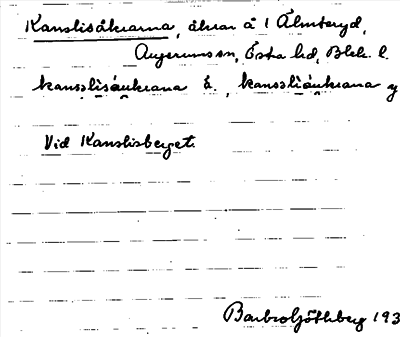 Kanslisåkrarna, åkrar å 1 Älmteryd,
Augerums sn, Östra hd, Blek. l.
kansslisåukrana ä., kansslisåukrana y
Vid Kanslisberget.
Barbro Göthberg 193